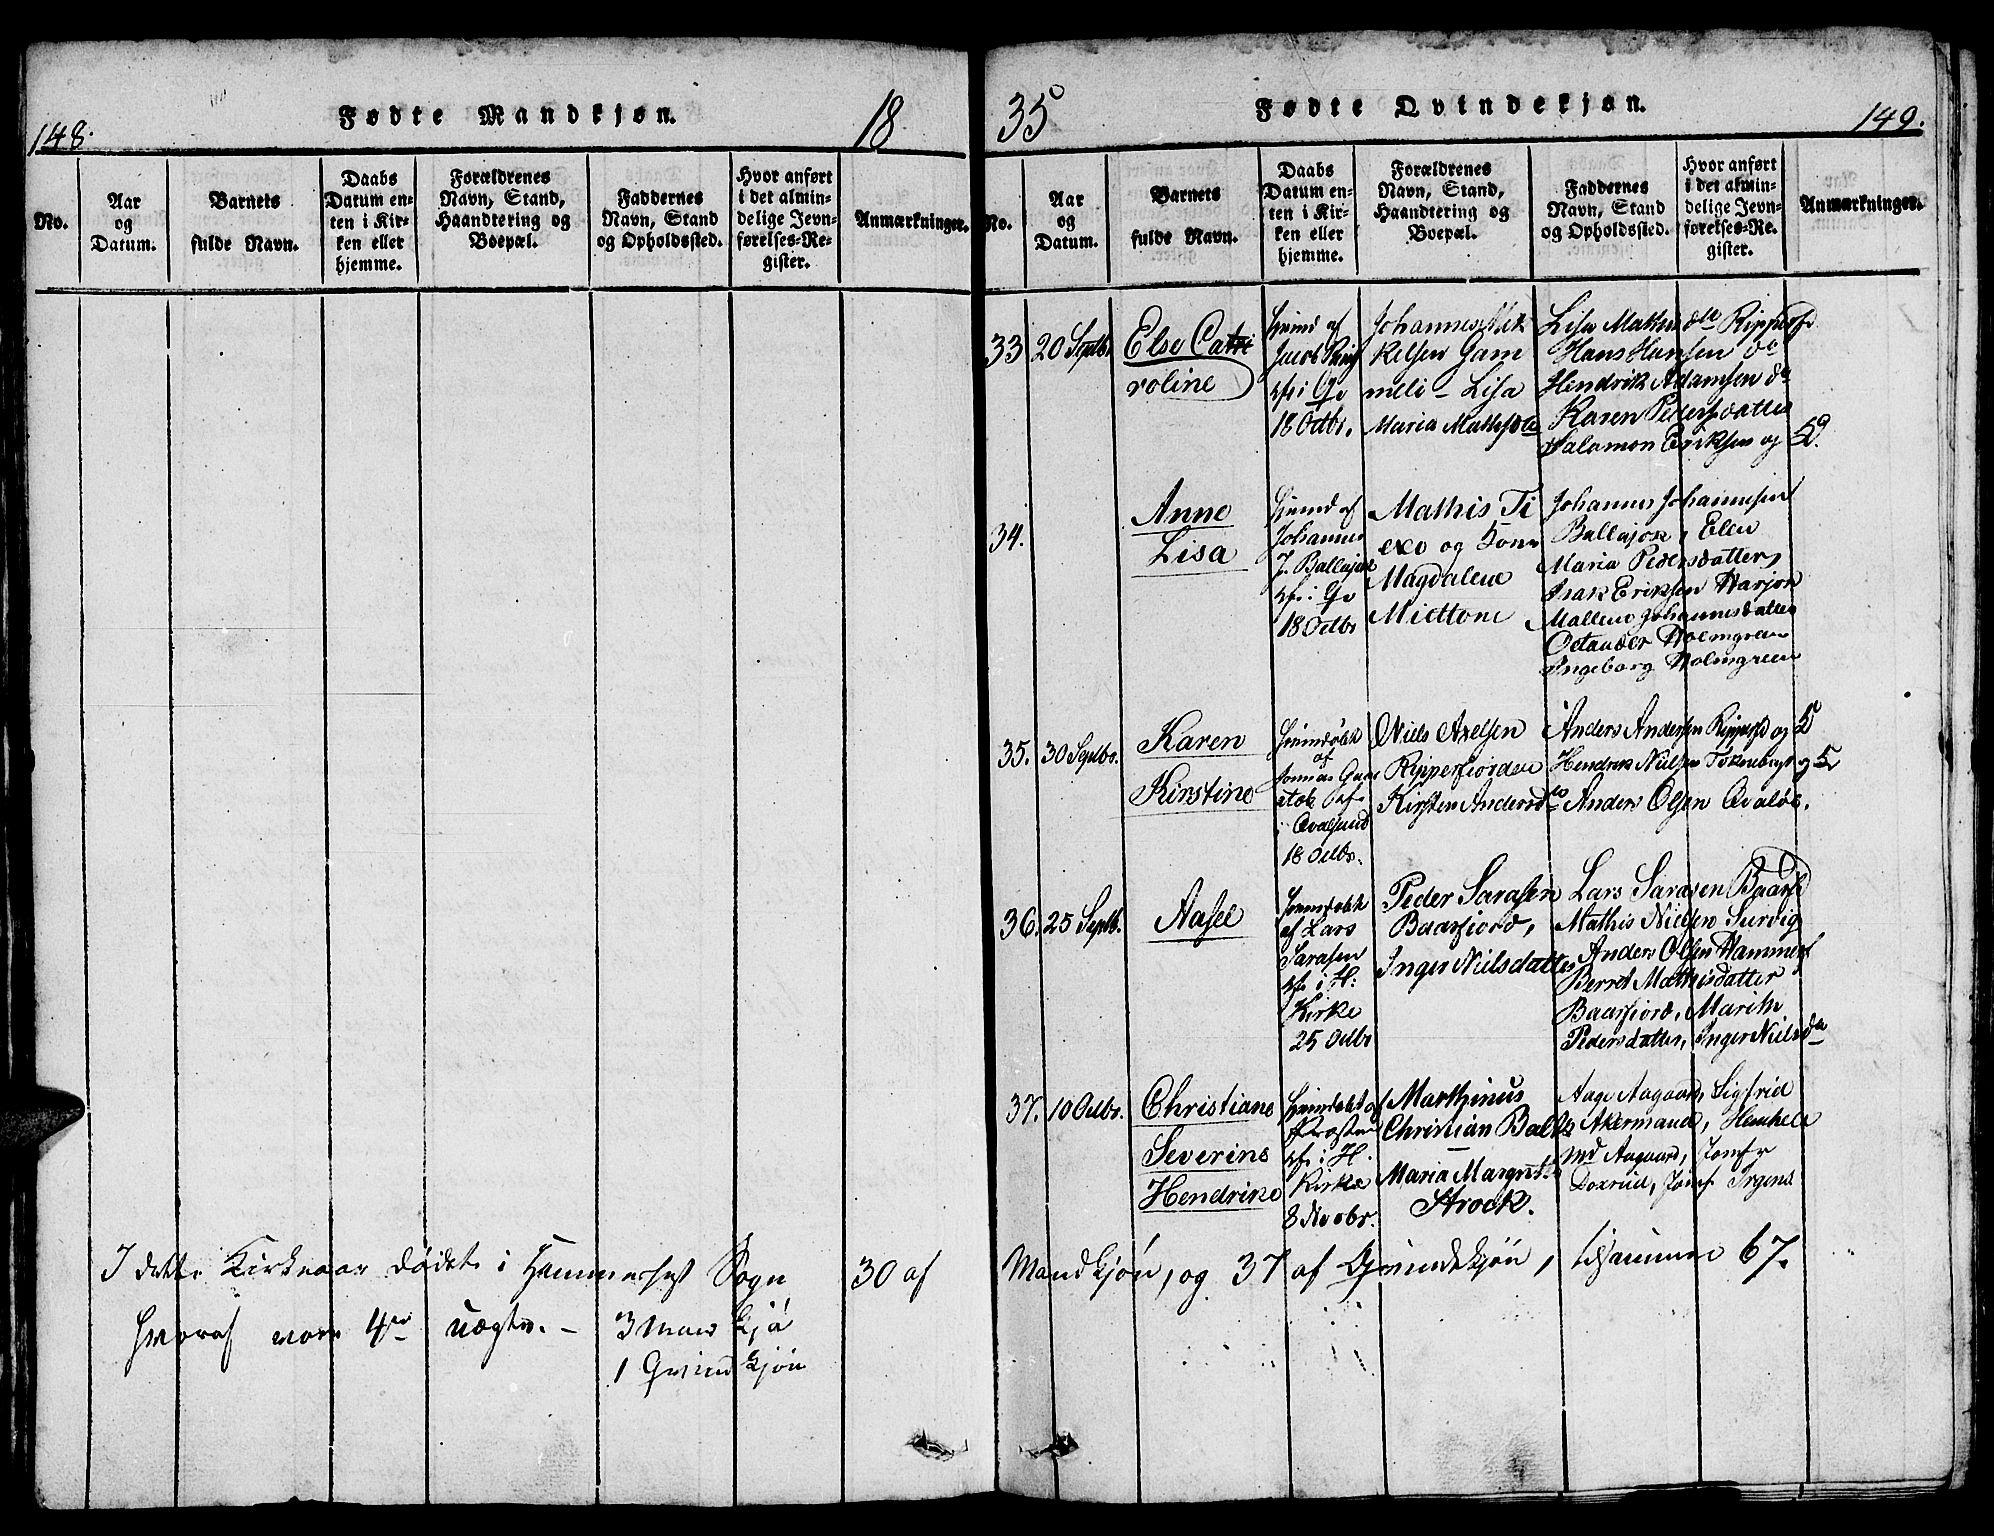 148.
Fødte Mandkjøn.
18
No.
Aar
og
Datum.
Barnets
fulde Navn.
Daabs
Datum en-
ten i Kir-
ken eller
hjemme.
Forældrenes
Navn, Stand,
Haandtering og
Boepæl.
Faddernes
Navn, Stand
og Opholdssted.
Hvor anført
i det almin-
delige Jevn-
førelses-Re-
gister.
Anmærkninger.
I dette Kirkeaar dødte i Hammerfest Sogn 30 af
hvoraf vare 4re uægte. - 3 Mandkjø
1 Qvindkjøn
35
Fødte Qvindekjøn.
149.
No.
Aar
og
Datum.
Barnets
fulde Navn.
Daabs
Datum en-
ten i Kir-
ken eller
hjemme.
Forældrenes
Navn, Stand,
Haandtering og
Boepæl.
Faddernes
Navn, Stand
og Opholdssted.
Hvor anført
i det almin-
delige Jevn-
førelses-Re-
gister.
Anmærkninger.
33
20 Septbr
Else Cat
roline
af
Jacob
18 Octbr.
Johannes Mik
kelsen Gam
meli - Lisa
Maria Mathisdtr
Lisa Mathisdtr Ripperfj
Hans Hansen do
Hendrik Adamsen do
Karen Pedersdatter
Salomon Eriksen og
34.
Anne
Lisa
af
Johannes
J. Ballasjok
18 Octbr
Mathis Ti
exe og
Magdalene
Miettone
Johannes Johannesen
Ballasjok, Elen
Maria Pedersdatter,
Isak Eriksen
Mallene Johannesdatter
Octander Holmgreen
Ingeborg Holmgreen
35.
30 Septbr.
Karen
Kirstine
Hiemdøbt
af
i Qvalsund
18 Octbr.
Niels Axelsen
Ripperfiorden
Kirsten Andersdtr
Anders Andersen Ripperfd og
Hendrik Nielsen
Anders Olsen Qvaløe.
36.
25 Septb.
Aasel
Hiemdøbt
af Lars
Sarasen
i H:
Kirke
25 Octbr
Peder Sarasen
Baarfiord,
Inger Nielsdatter
Lars Sarasen Baarfd
Mathis Nielsen Survig
Anders Olsen Hammerf
Berret Mathisdatter
Baarfiord, Marith
Pedersdatter, Inger Nielsda
37.
10 Octbr.
Christiane
Severine
Hendrike
Hiemdøbt af
Præsten
i H.
Kirke
8 Novbr.
Marthinus
Christian Balke
Maria Margrethe
Strock.
Aage Aagaard, Sigfrid
Akermand, Henkel
Md Aagaard, Jomfr
Doxrud, Jomf Irgens
Mandkjøn, og 37 af Qvindekjøn, tilsammen 67.